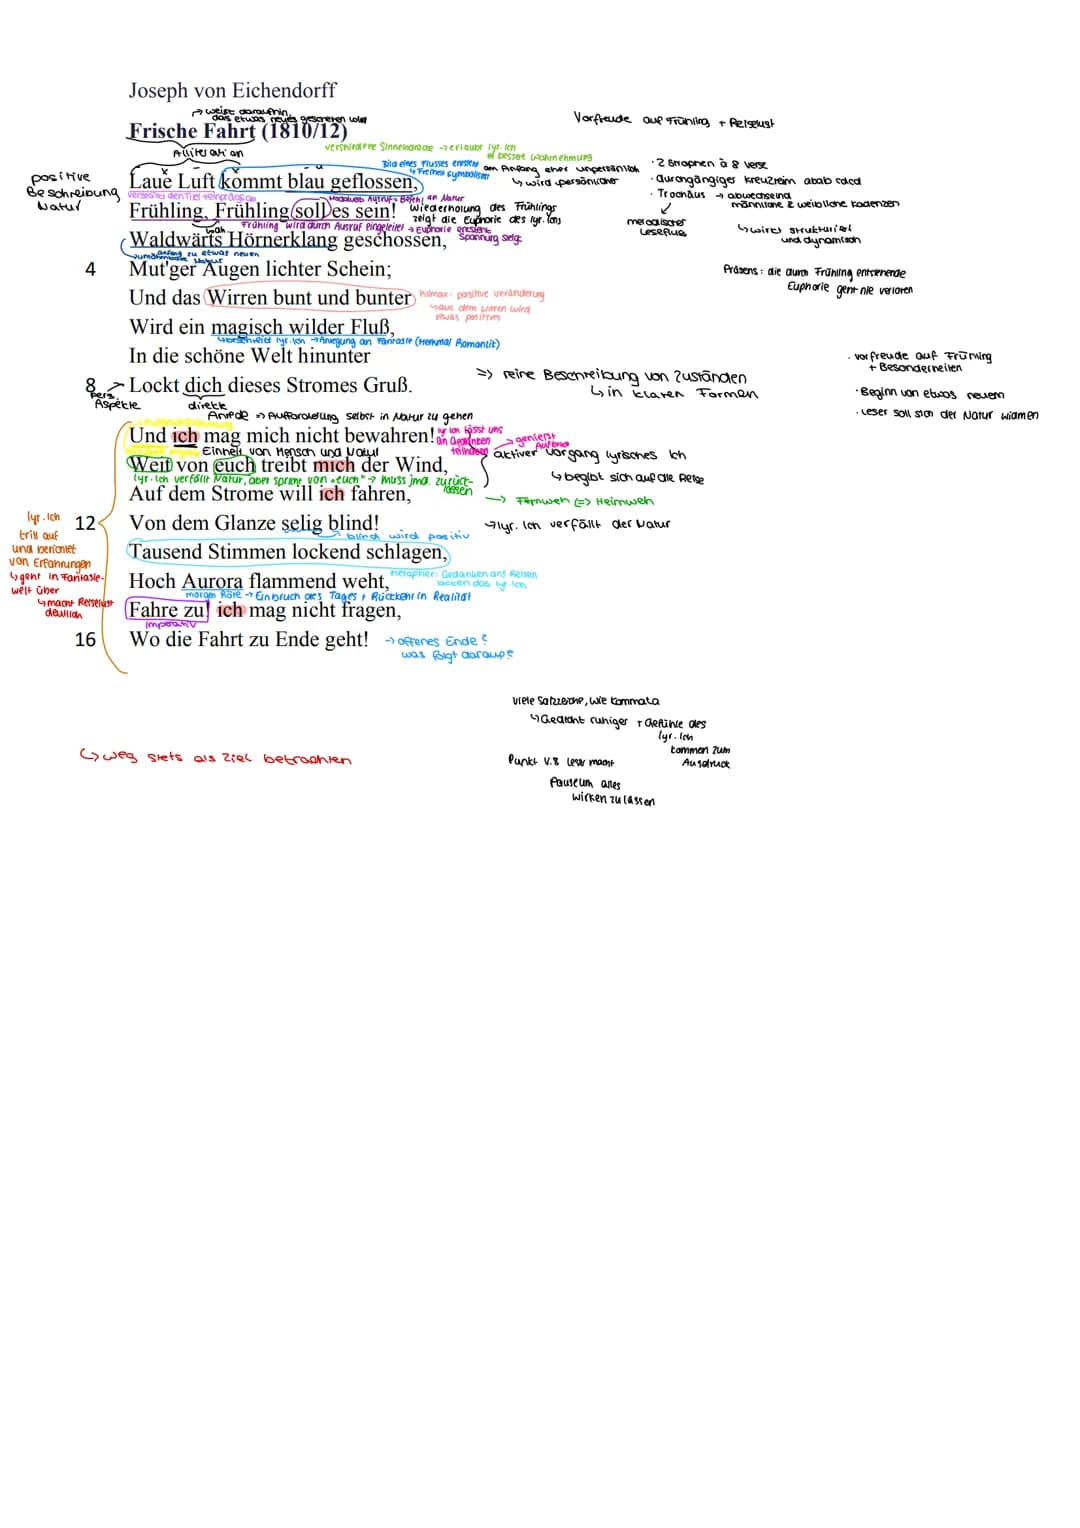 Joseph von Eichendorff
→ weist daraufhin,
dass etwas neues geschehen wird
Frische Fahrt (1810/12)
Alliteration
Vorfreude auf Frühling + Reiselust
verschiedene Sinneseindrücke → erlaubt lyr. Ich
bessere Wahrnehmung
Bild eines Flusses entsteht
↳ Freiheit symbolisiert
am Anfang eher unpersönlich
↳ wird persönlicher
· 2 Strophen à 8 Verse
· durchgängiger Kreuzreim abab cdcd
· Trochäus → abwechselnd
männliche & weibliche Kadenzen
melodischer
Lesefluss
↳ wirkt strukturiert
und dynamisch
positive
Beschreibung
Natur
Laue Luft kommt blau geflossen,
verstärkt den Titel
Frühling, Frühling soll es sein!
Wiederholung des Frühlings
zeigt die Euphorie des lyr. Ichs
Frühling wird durch Ausruf eingeleitet → Euphorie entsteht
Spannung steigt
Waldwärts Hörnerklang geschossen,
Anfang zu etwas neuen
4 Mut'ger Augen lichter Schein;
Präsens: die durch Frühling entstehende
Euphorie geht nie verloren
Und das Wirren bunt und bunter
Klimax: positive Veränderung
↳ aus dem Wirren wird
etwas positives
Wird ein magisch wilder Fluß,
lyr. Ich → Anregung an Fantasie (Merkmal Romantik)
In die schöne Welt hinunter
8 Lockt dich dieses Stromes Gruß.
pers.
Aspekte
direkte
Anrede => Aufforderung selbst in Natur zu gehen
=> reine Beschreibung von Zuständen
↳ in klaren Formen
· Vorfreude auf Frühling
+ Besonderheiten
· Beginn von etwas neuem
· Leser soll sich der Natur widmen
Und ich mag mich nicht bewahren!
lyr Ich lässt uns
an Gedanken
teilhaben
→ genießt
Aufbruch
Einheit von Mensch und Natur
Weit von euch treibt mich der Wind,
aktiver Vorgang lyrisches Ich
↳ begibt sich auf die Reise
lyr. Ich verfällt Natur, aber spricht von „euch" → muss jmd. zurück-
lassen
Auf dem Strome will ich fahren,
→ Fernweh <=> Heimweh
12 Von dem Glanze selig blind!
↳ lyr. Ich verfällt der Natur
→ blind wird positiv
lyr. Ich
tritt auf
und berichtet
von Erfahrungen
↳ geht in Fantasie-
welt über
↳ macht Reiselust
deutlich
Tausend Stimmen lockend schlagen,
Metapher: Gedanken ans Reisen
locken das lyr. Ich
Hoch Aurora flammend weht,
morgen Röte → Einbruch des Tages + Rückkehr in Realität
Fahre zu! ich mag nicht fragen,
Imperativ
16 Wo die Fahrt zu Ende geht!
→ offenes Ende?
was folgt darauf?
viele Satzzeichen, wie Kommata
↳ Gedicht ruhiger + Gefühle des
lyr. Ich
kommen zum
Ausdruck
↳ Weg stets als Ziel betrachten
Punkt V.8 Leser macht
Pause um alles
wirken zu lassen